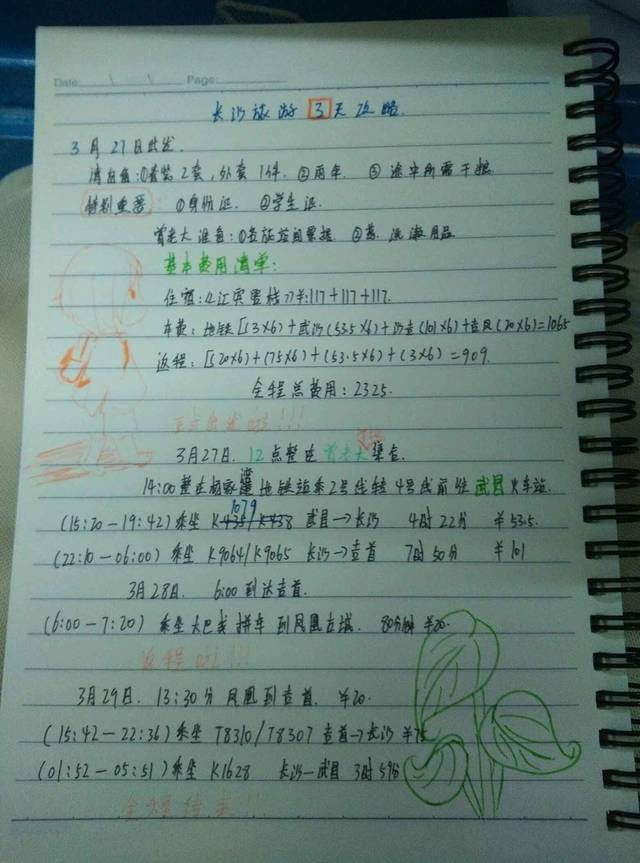 Date: \ \ Page:
长沙旅游3天攻略.
3月27日出发.
清自备:①套装2套,外套1件. ②雨伞. ③途中所需干粮
特别重要: ①身份证. ②学生证.
首老大准备:①查证益阳票据 ②药.洗漱用品
基本费用清单:
住宿:《江宾客栈》羊:117+117+117.
车费:地铁[(3×6)+武汐(53.5×6)+沙吉(101×6)+吉凤(20×6)=1065
返程:[(20×6)+(75×6)+(53.5×6)+(3×6)=909.
全程总费用:2325.
正式出发啦!!!
3月27日.12点整在首老大集合.
14:00整在 地铁站乘2号线转4号线前往武昌火车站.
1079
(15:20-19:42)乘坐K438/K438 武昌→长沙 4时22分 ¥53.5.
(22:10-06:00)乘坐K9064/K9065 长沙→吉首 7时50分 ¥101
3月28日. 6:00到达吉首.
(6:00-7:20)乘坐大巴或拼车到凤凰古城. 80分钟 ¥20.
返程啦!!!
3月29日. 13:30分 凤凰到吉首. ¥20.
(15:42-22:36)乘坐T8310/T8307 吉首→长沙 ¥75
(01:52-05:51)乘坐K1628 长沙—武昌 3时59分
全程结束!!!